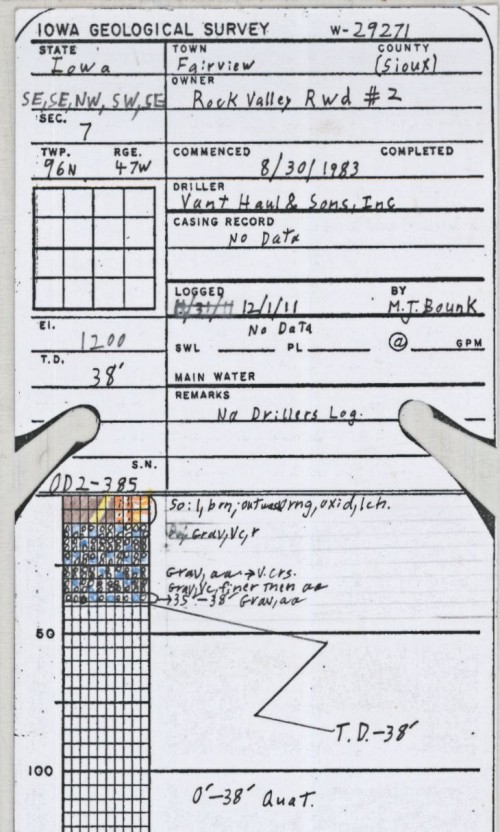 IOWA GEOLOGICAL SURVEY W-29271
STATE TOWN COUNTY
Iowa Fairview (Sioux)
OWNER
SE, SE, NW, SW, SE Rock Valley Rwd #2
SEC.
7
TWP. RGE. COMMENCED COMPLETED
96N 47W 8/30/1983
DRILLER
Vant Haul & Sons, Inc
CASING RECORD
No Data
LOGGED BY
12/1/11 M.J. Bounk
El. No Data
1200 SWL PL @ GPM
T.D.
38' MAIN WATER
REMARKS
No Drillers Log.
S.N.
OD2-385
So: l, brn, outwash rng, oxid, lch.
Grav, Vc, r
Grav, aa → V. crs.
Grav, Vc, finer then aa
→35'-38' Grav, aa
50
T.D.-38'
100
0'-38' Quat.